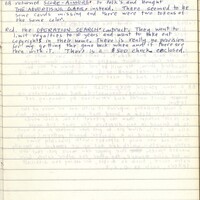 returned SCORE-ALWAYS to Rolb's and bought
THE ADVERTISING GAME instead. There seemed to be
some cards missing and there were two tokens of
the same color.
Rcd. the OPERATION SEARCH contract. They want to
limit royalties to 4 years and want to take out
copyrights in their name. There is really no provision
for my getting the game back when and if theres
thru with it. There is a $500 check enclosed.